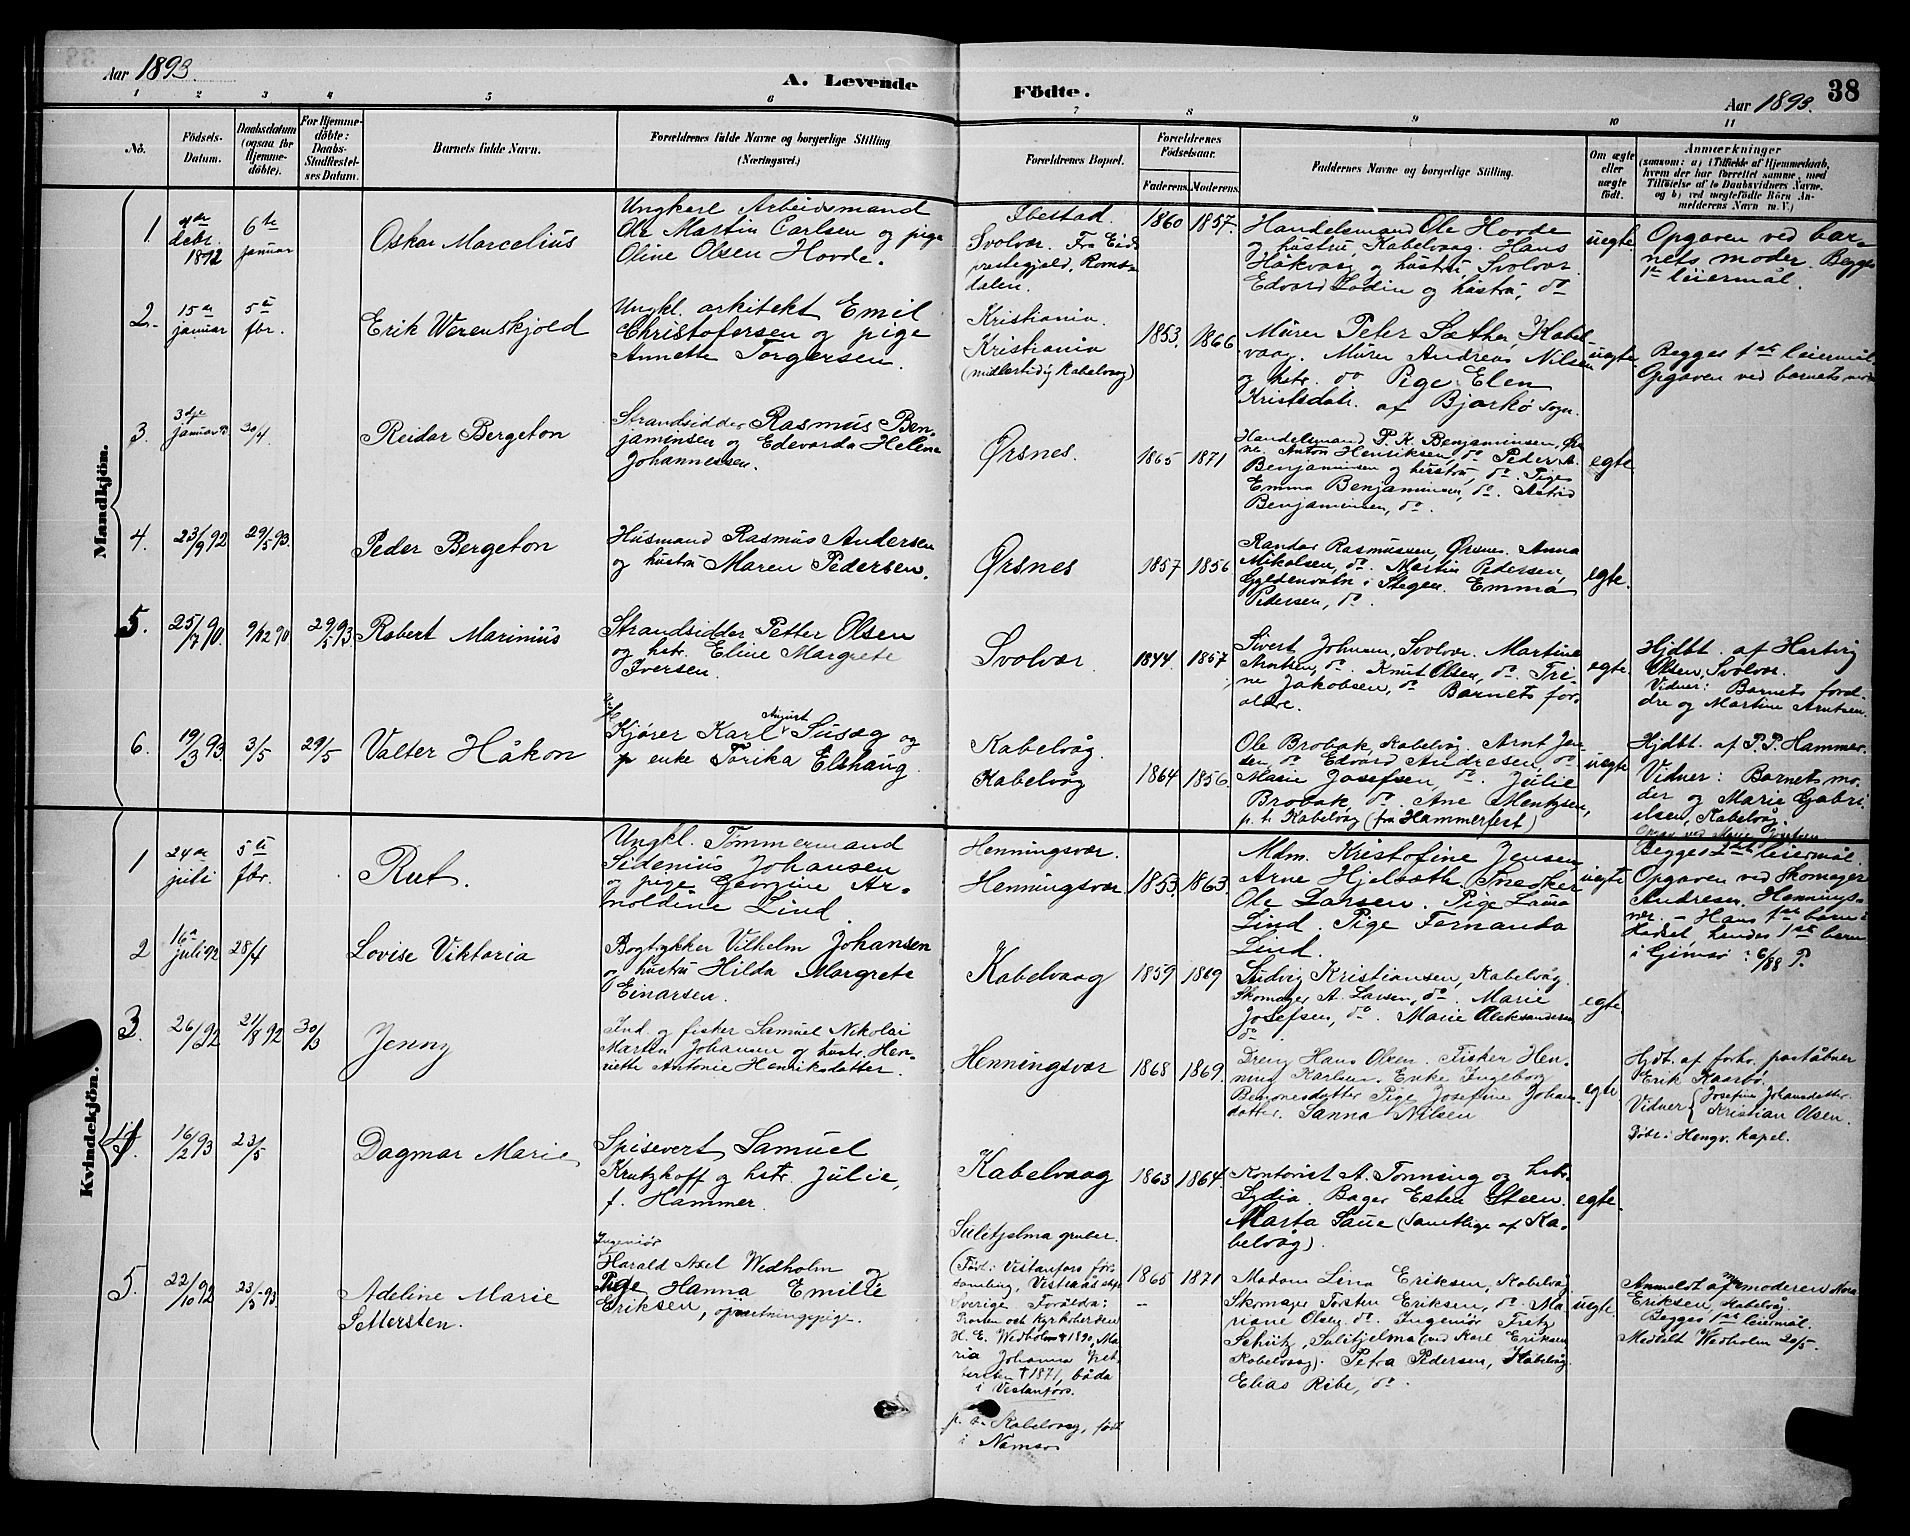 Aar 1893.
A. Levende Födte.
Aar 1893. 38
1 2 3 4 5 6 7 8 9 10 11
No.
Födsels-Datum.
Daabsdatum (ogsaa for Hjemmedöbte).
For Hjemmedöbte: Daabs-Stadfæstelses Datum.
Barnets fulde Navn.
Forældrenes fulde Navne og borgerlige Stilling (Næringsvei.)
Forældrenes Bopæl.
Forældrenes Födselsaar.
Faderens. Moderens.
Faddernes Navne og borgerlig Stilling.
Om ægte eller uægte födt.
Anmærkninger
(saasom: a) i Tilfælde af Hjemmedaab,
hvem der har forrettet samme, med
Tilföielse af to Daabsvidners Navne,
og b) ved uægtefödte Börn Anmelderens Navn m. V.)
Mandkjön.
1. debr. 1892
6te januar
Oskar Marcelius
Ungkarl Arbeidsmand
Ole Martin Carlsen og pige
Oline Olsen Hovde.
Ibestad.
Svolvær. Fra Eids
prestegjeld, Romsdalen.
1860 1857.
Handelsmand Ole Hovde
og hustru, Kabelvaag. Hans
Håkvåg og hustru, Svolvær.
Edvard Lodin og hustru, do
uegte.
Opgaven ved barnets moder. Begges
1te leiermål.
2. 15de januar
5te fbr.
Erik Werenskjold
Ungkl. arkitekt Emil
Christofersen og pige
Annette Torgersen.
Kristiania.
Kristiania
(midlertidig Kabelvåg)
1853. 1866
Murer Peter Sæther, Kabelvaag. Murer Andreas Nilsen
og hstr. do Pige Elen
Kristsdatr. af Bjarkö sogn.
uegte.
Begges 1ste leiermål.
Opgaven ved barnets
3. 3dje januar
30/4
Reidar Bergeton
Strandsidder Rasmus Benjaminsen og Edevarda Helene
Johannessen.
Ørsnes.
1865 1871
Handelsmand P. K. Benjaminsen, Ørsnes. Anton Henriksen, do. Peder A.
Benjaminsen og hustru, do. Pige
Emma Benjaminsen, do. Astrid
Benjaminsen, do.
egte
4. 23/9 92
29/5 93.
Peder Bergeton
Husmand Rasmus Andersen
og hustru Maren Pedersen.
Ørsnes
1857 1856
Randar Rasmussen, Ørsnes. Anna
Mikalsen, do. Martin Pedersen,
Gyldenvatn i Stegen. Emma
Pedersen, do.
egte.
5. 25/7 90.
9/12 90
29/5 93
Robert Marinius
Strandsidder Petter Olsen
og hstr. Eline Margrete
Iversen.
Svolvær.
1844. 1857
Sivert Johnsen, Svolvær. Martine
Arntsen, do. Knut Olsen, do. Trine Jakobsen, do Barnets forældre.
egte.
Hjdbt. af Hartvig
Olsen, Svolvær.
Vidner: Barnets forældre og Martine Arntsen.
6. 19/3 93
3/5
29/5
Valter Håkon
Kjører Karl August Susæg og
enke Torika Elshaug.
Kabelvåg.
Kabelvåg
1864 1856
Ole Brobak, Kabelvåg. Arnt Jensen, do. Edvard Andresen do
Marie Josefsen, do. Julie
Brobak, do. Ane Mentzsen,
p. t. Kabelvåg (fra Hammerfest)
uegte
Hjdbt. af P. P. Hammer.
Vidner: Barnets moder og Marie Gabrielsen, Kabelvåg.
Kvindekjön.
1 24de juli
5te fbr.
Rut.
Ungkl. Tømmermand
Sidenius Johansen
og pige Georgine Arnoldine Lind.
Henningsvær.
Henningsvær
1853. 1863.
Mdm. Kristofine Jensen
Arne Hjelvæth. Snedker
Ole Larsen. Pige Laura
Lind. Pige Fernanda
Lind.
uegte
Begges leiermål.
Opgaven ved Skomager
Andresen, Henningsvær. – Hans 1ste barn i
Hadsel, hendes 1ste barn
i Gimsø 6/88 P.
2 16de juli 92
28/4
Lovise Viktoria
Bogtrykker Vilhelm Johansen
og hustru Hilda Margrete
Einarsen.
Kabelvaag
1859 1869
Ludvig Kristiansen, Kabelvåg.
Skomager A. Larsen, do. Marie
Josefsen, do. Marie Aleksandersen
do.
egte
3. 26/ 92
21/8 92
30/3
Jenny
Ind. og fisker Samuel Nikolai
Martin Johansen og hustr. Henriette Antonie Henriksdatter.
Henningsvær
1868 1869.
Dreng Hans Olsen. Fisker Henning Karlsen. Enke Ingeborg
Benonesdatter. Pige Josefine Johansdatter. Sanna Nilsen
egte
Hjdt. af forhv. poståbner
Erik Kaarbø.
Vidner { Josefine Johansdatter.
Kristian Olsen.
Døbt i Hengv. kapel.
4. 16/2 93
23/5
Dagmar Marie
Spisevert Samuel
Krutzhoff og hstr. Julie,
f. Hammer.
Kabelvaag
1863 1864.
Kontorist A. Tonning og hstr.
Lydia. Bager Esten Steen.
Marta Saue (Samtlige af Kabelvåg).
egte.
5. 22/10 92
23/5 93.
Adeline Marie
Settersten.
Ingeniør
Harald Axel Wedholm og
Pige Hanna Emilie
Eriksen, opvartningspige.
Sulitjelma gruber.
(Född i Vestanfors församling, Vestraås
Sverige Förälda:
Prosten och Kyrkoherden
H. E. Wedholm † 1890, Maria Johanna
† 1871, båda
i Vestanfors.
p. t. Kabelvaag, född
i Namsos
1865 1871
–
Madam Lina Eriksen, Kabelvåg
Skomager Torsten Eriksen, do. Mariane Olsen do. Ingeniør Fritz
Schütz, Sulitjelma (ved Karl Eriksen
Kabelvaag). Petra Pedersen, Kabelvåg.
Elias Ribe, do.
uegte.
Anmeldt af moderen
Eriksen, Kabelvåg.
Begges 1ste leiermål.
Meddelt Wedholm 20/5.